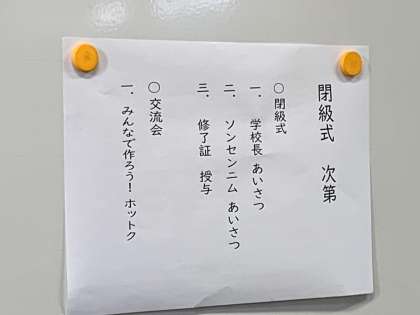 閉級式　次第
〇 閉級式
一．　学校長 あいさつ
二．　ソンセンニム あいさつ
三．　修了証　授与
〇 交流会
一．みんなで作ろう！ホットク